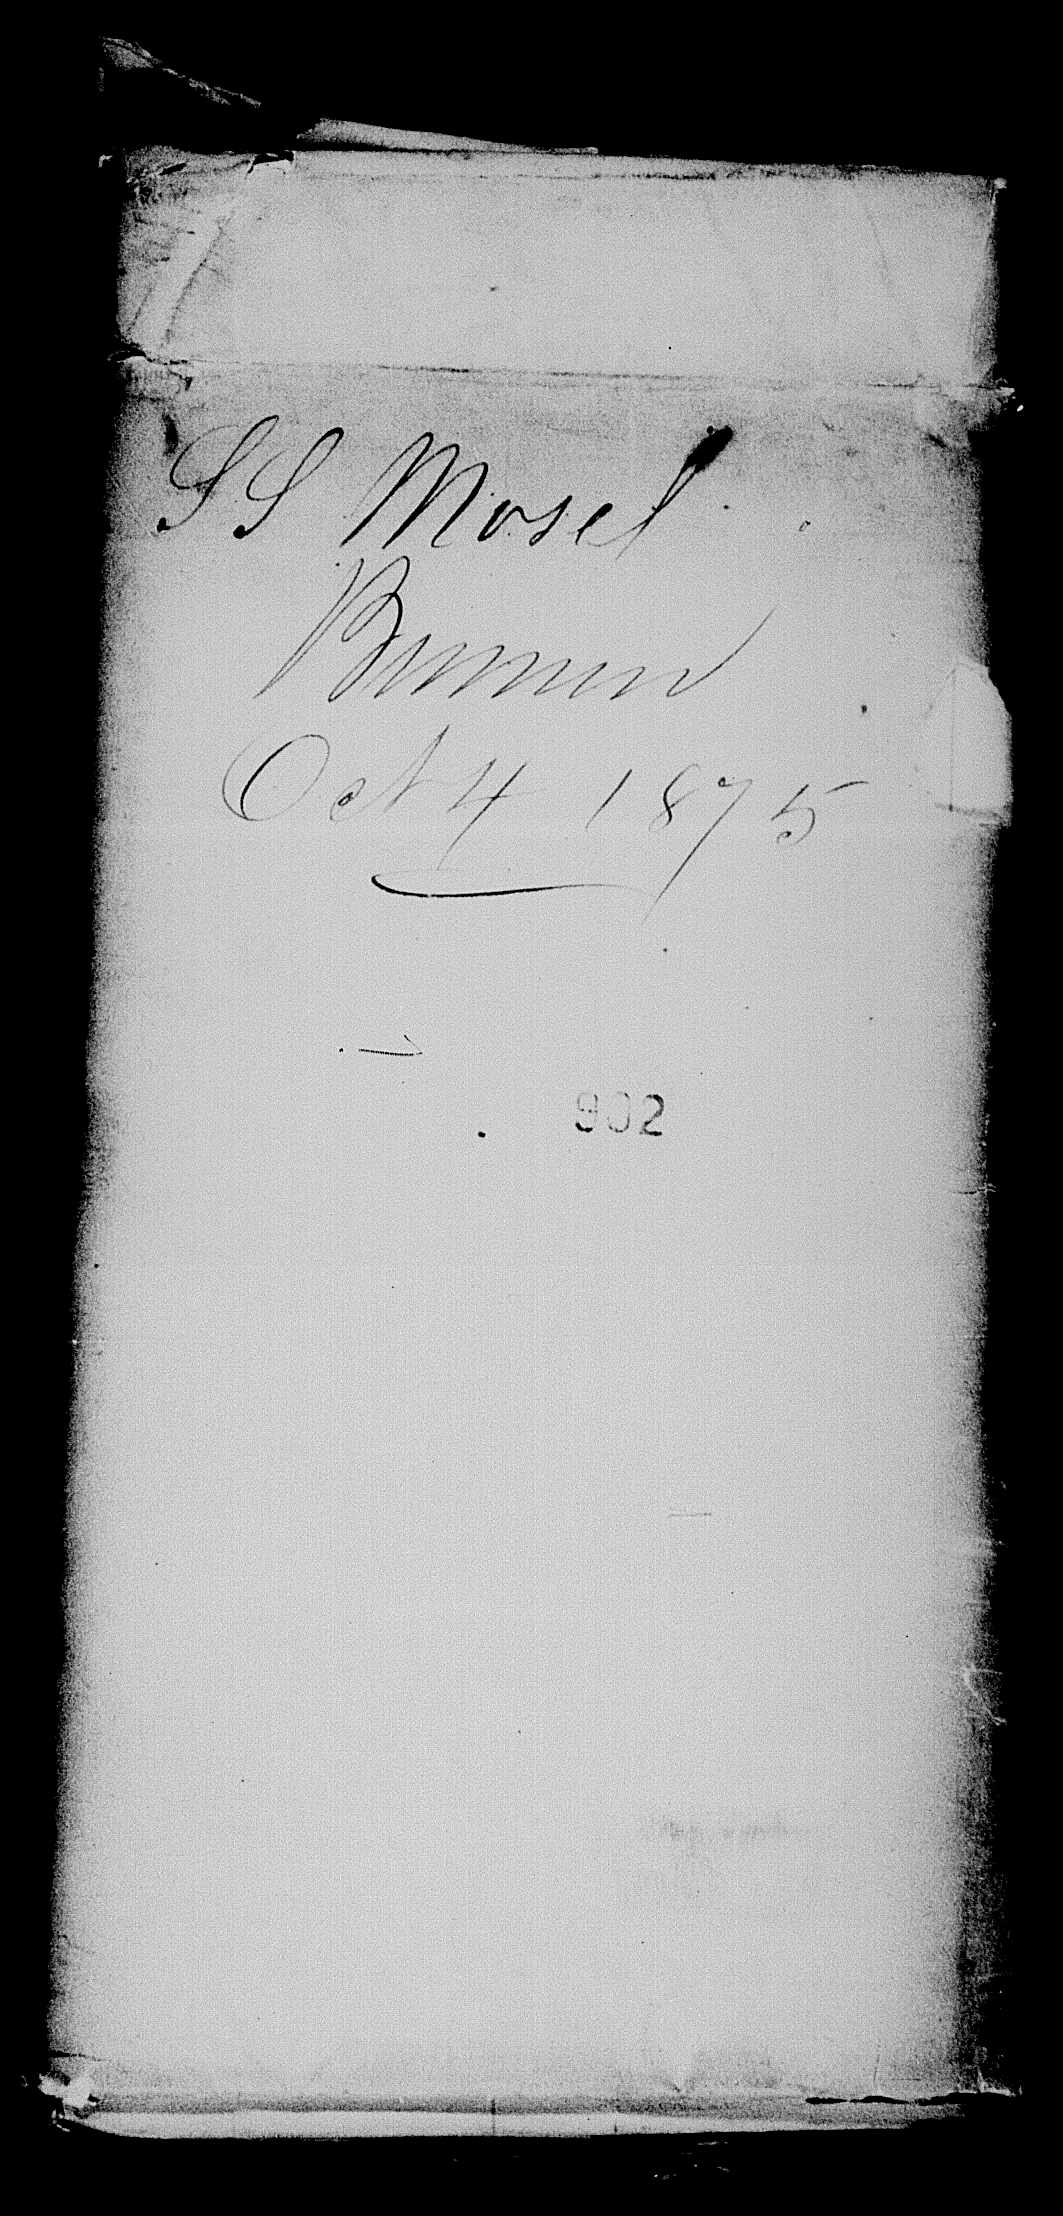 SS Mosel
Bremen
Oct 4 1875
902